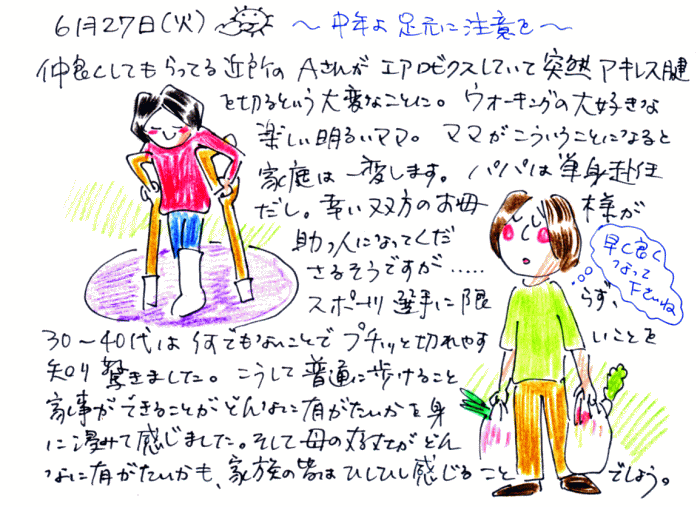 6月27日(火) 〜中年よ 足元に注意を〜
仲良くしてもらってる近所のAさんが エアロビクスしていて突然アキレス腱
を切るという大変なことに。ウォーキングの大好きな
楽しい明るいママ。ママがこういうことになると
家庭は一変します。パパは単身赴任
だし。幸い双方のお母様が
助っ人になってくだ
さるそうですが……
スポーツ選手に限らず、
30〜40代は何でもないことでプチッと切れやすいことを
知り驚きました。こうして普通に歩けること
家事ができることがどんなに有がたいかを身
に浸みて感じました。そして母の丈夫がどん
なに有がたいかも、家族の皆はひしひし感じることでしょう。
早く良く
なって
下さいね